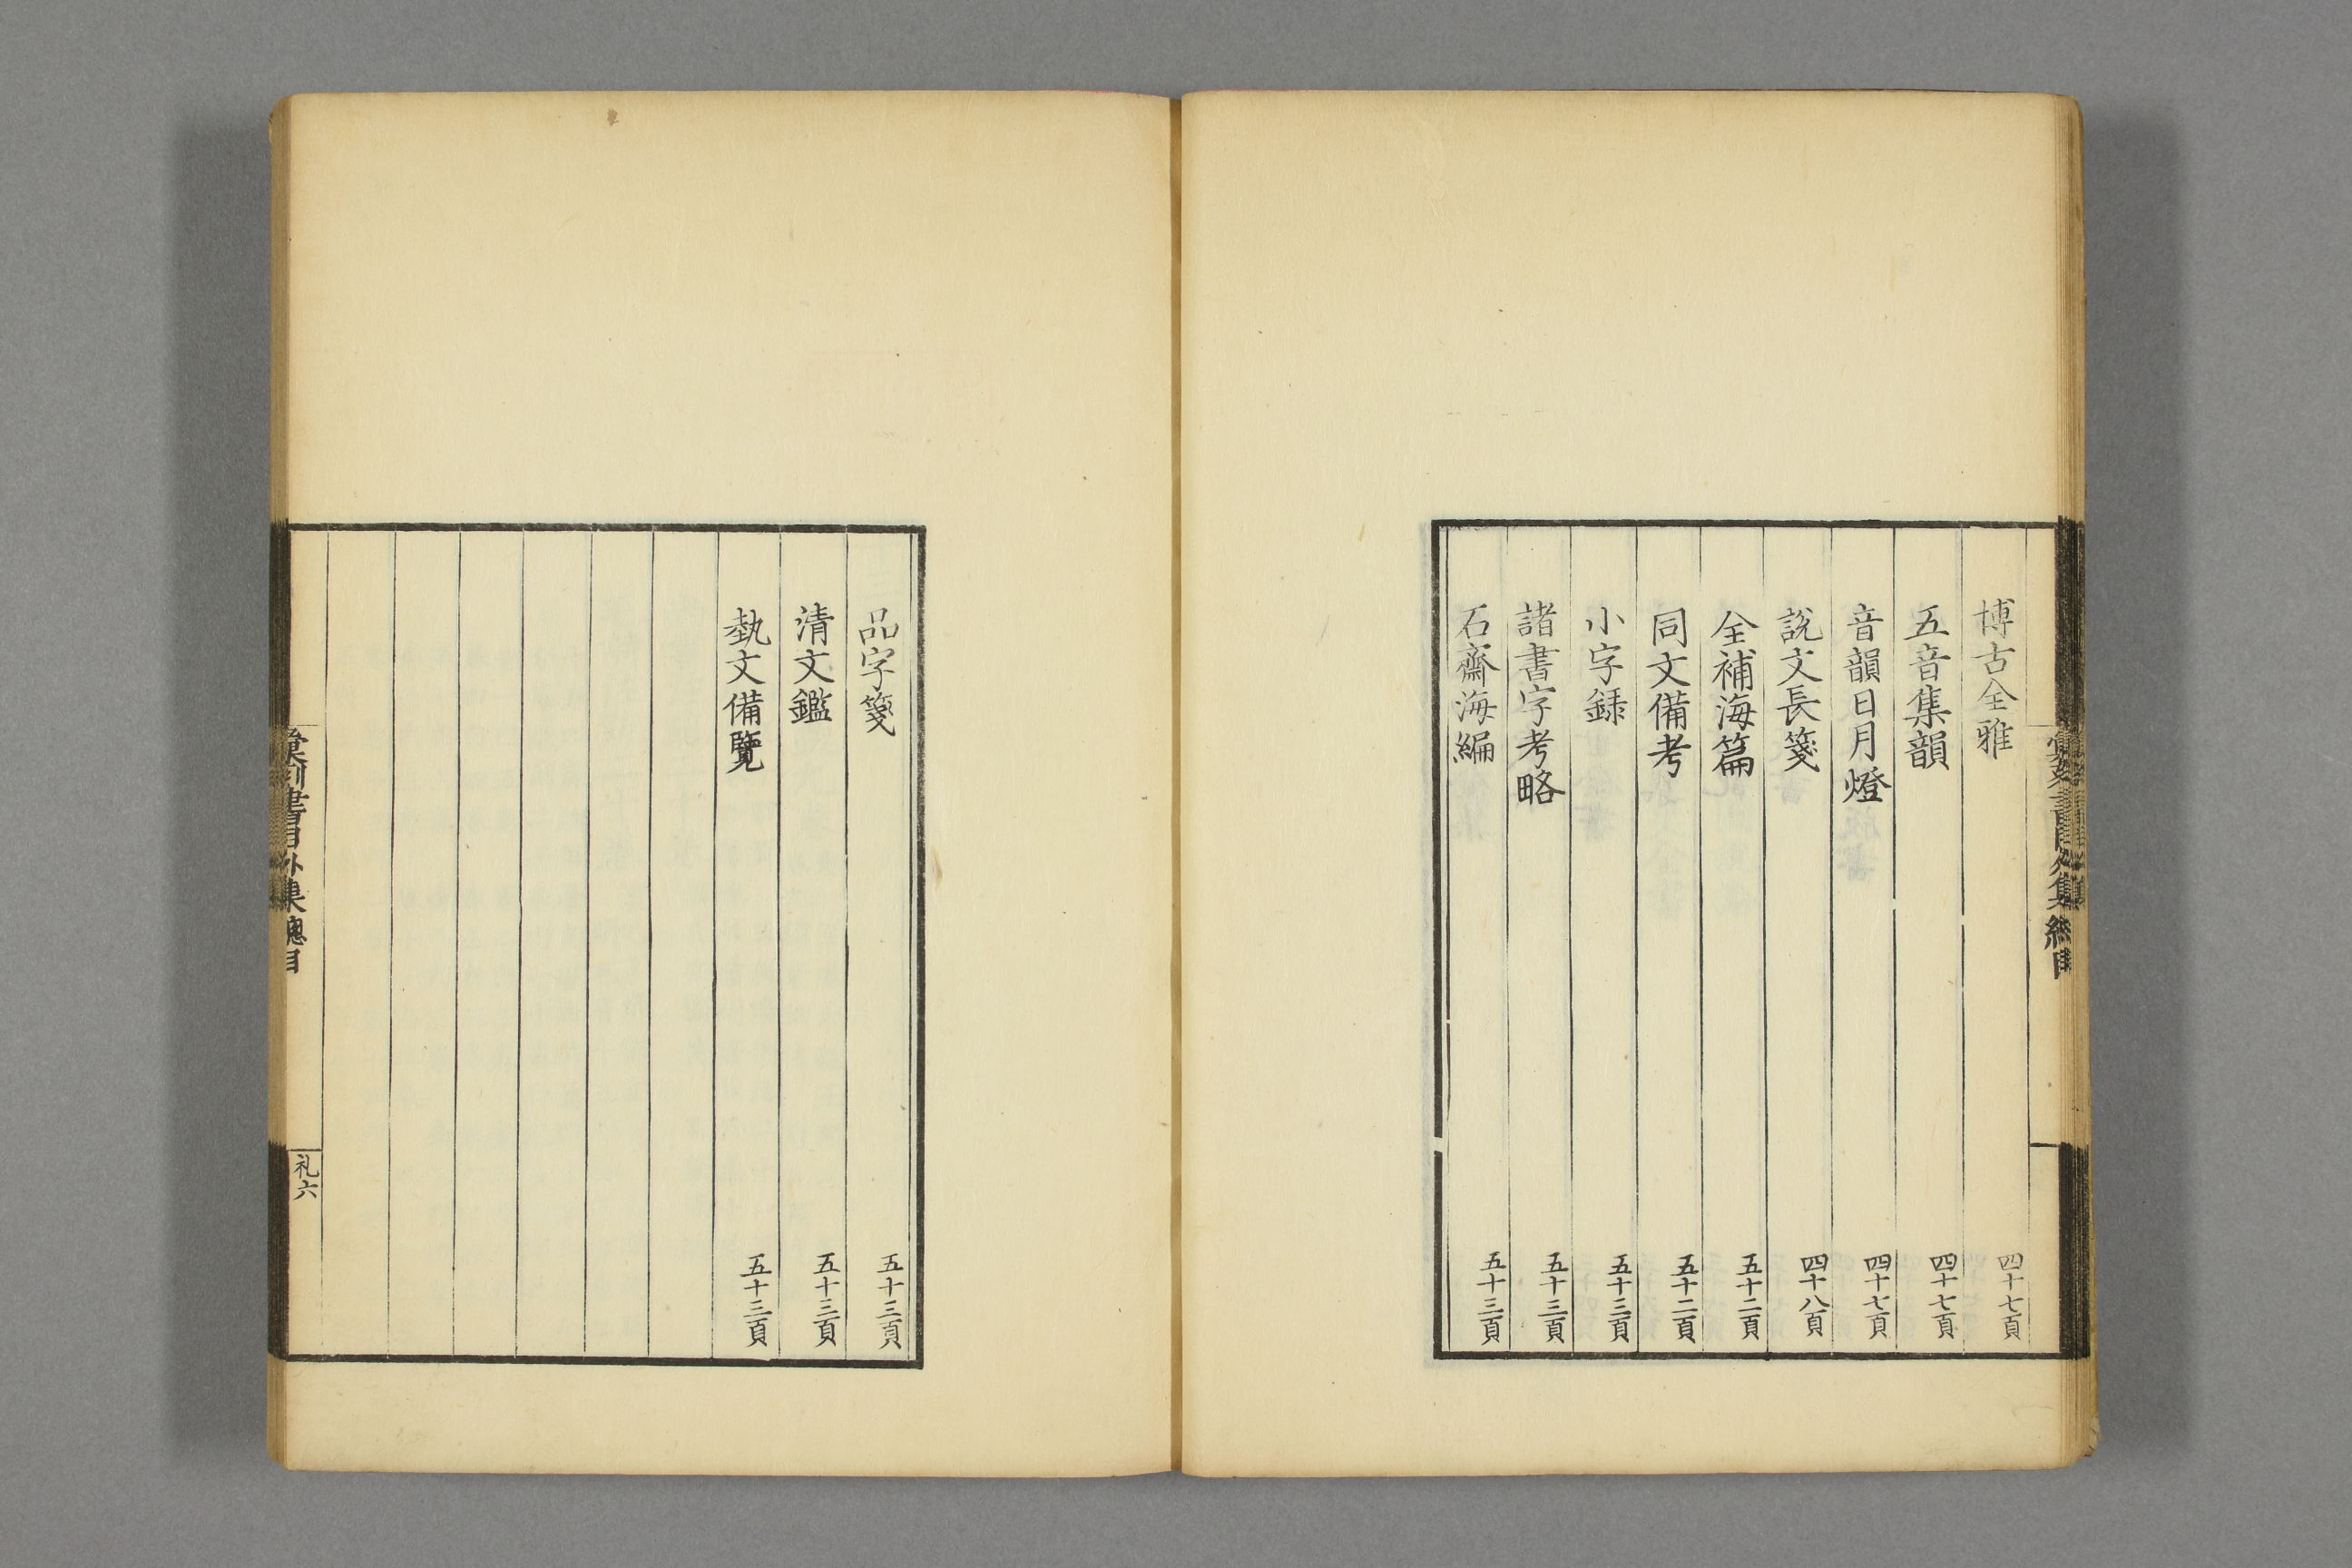 博古全雅　四十七頁
五音集韻　四十七頁
音韻日月燈　四十七頁
說文長箋　四十八頁
全補海篇　五十二頁
同文備考　五十二頁
小字録　五十三頁
諸書字考略　五十三頁
石齋海編　五十三頁
品字箋　五十三頁
清文鑑　五十三頁
埶文備覽　五十三頁
彙刻書目外集總目
礼六